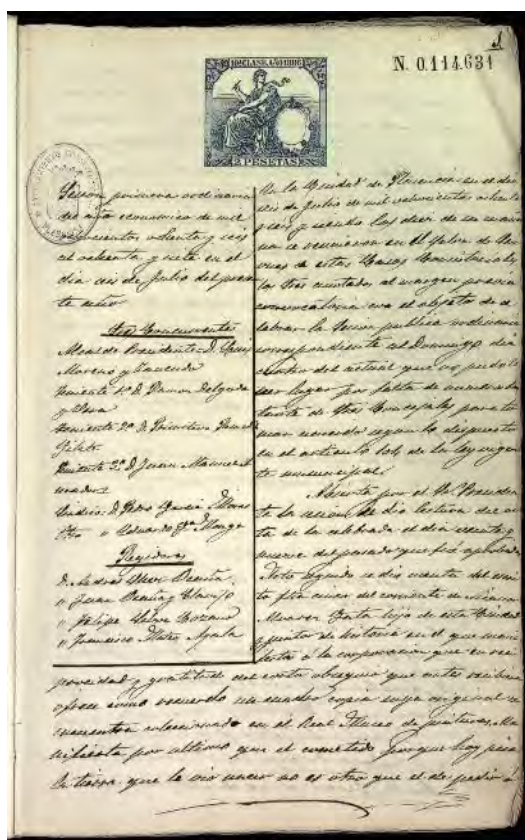 1
N. 0.114.631
2 PESETAS
Sesion primera ordinaria
del año economico de mil
ochocientos ochenta y seis
al ochenta y siete en el
dia seis de Julio del presen
te año
Sres Concurrentes
Alcalde Presidente D.
Moreno y
Teniente 1º D. Ramon Delgado
y
Teniente 2º D. Primitivo
Teniente 3º D. Juan
Sindico D. Pedro Garcia
Otro " Eduardo
Regidores
D. Andres
" Juan
" Felipe
" Francisco Mateos Ayala
En la Ciudad de Plasencia en el dia
seis de Julio de mil ochocientos ochenta
y seis y siendo las diez de su maña
na se reunieron en el Salon de Sesio
nes de estas Casas Consistoriales
los Sres anotados al margen previa
convocatoria con el objeto de ce
lebrar la Sesion publica ordinaria
correspondiente al Domingo dia
cuatro del actual que no pudo te
ner lugar por falta de numero bas
tante de Sres Concejales para to
mar acuerdo segun lo dispuesto
en el articulo 104 de la ley vigen
te municipal.
Abierta por el Sr Presiden
te la sesion se dio lectura del ac
ta de la celebrada el dia veinte y
nueve del pasado que fue aprobada
Acto seguido se dio cuenta del escri
to fha del corriente de
Alvarez hijo de esta Ciudad
y pintor de historia en el que mani
fiesta a la corporacion que en reci
procidad y gratitud del obsequio que antes recibiera
ofrece como recuerdo un cuadro copia cuyo original se
encuentra coleccionado en el Real Museo de pinturas. Ma
nifiesta por ultimo que el cometido porque hoy pisa
la tierra que le vio nacer no es otro que el de pedir a